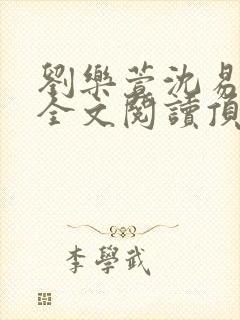 劉樂萱沈易
全文閱讀頂
李學武